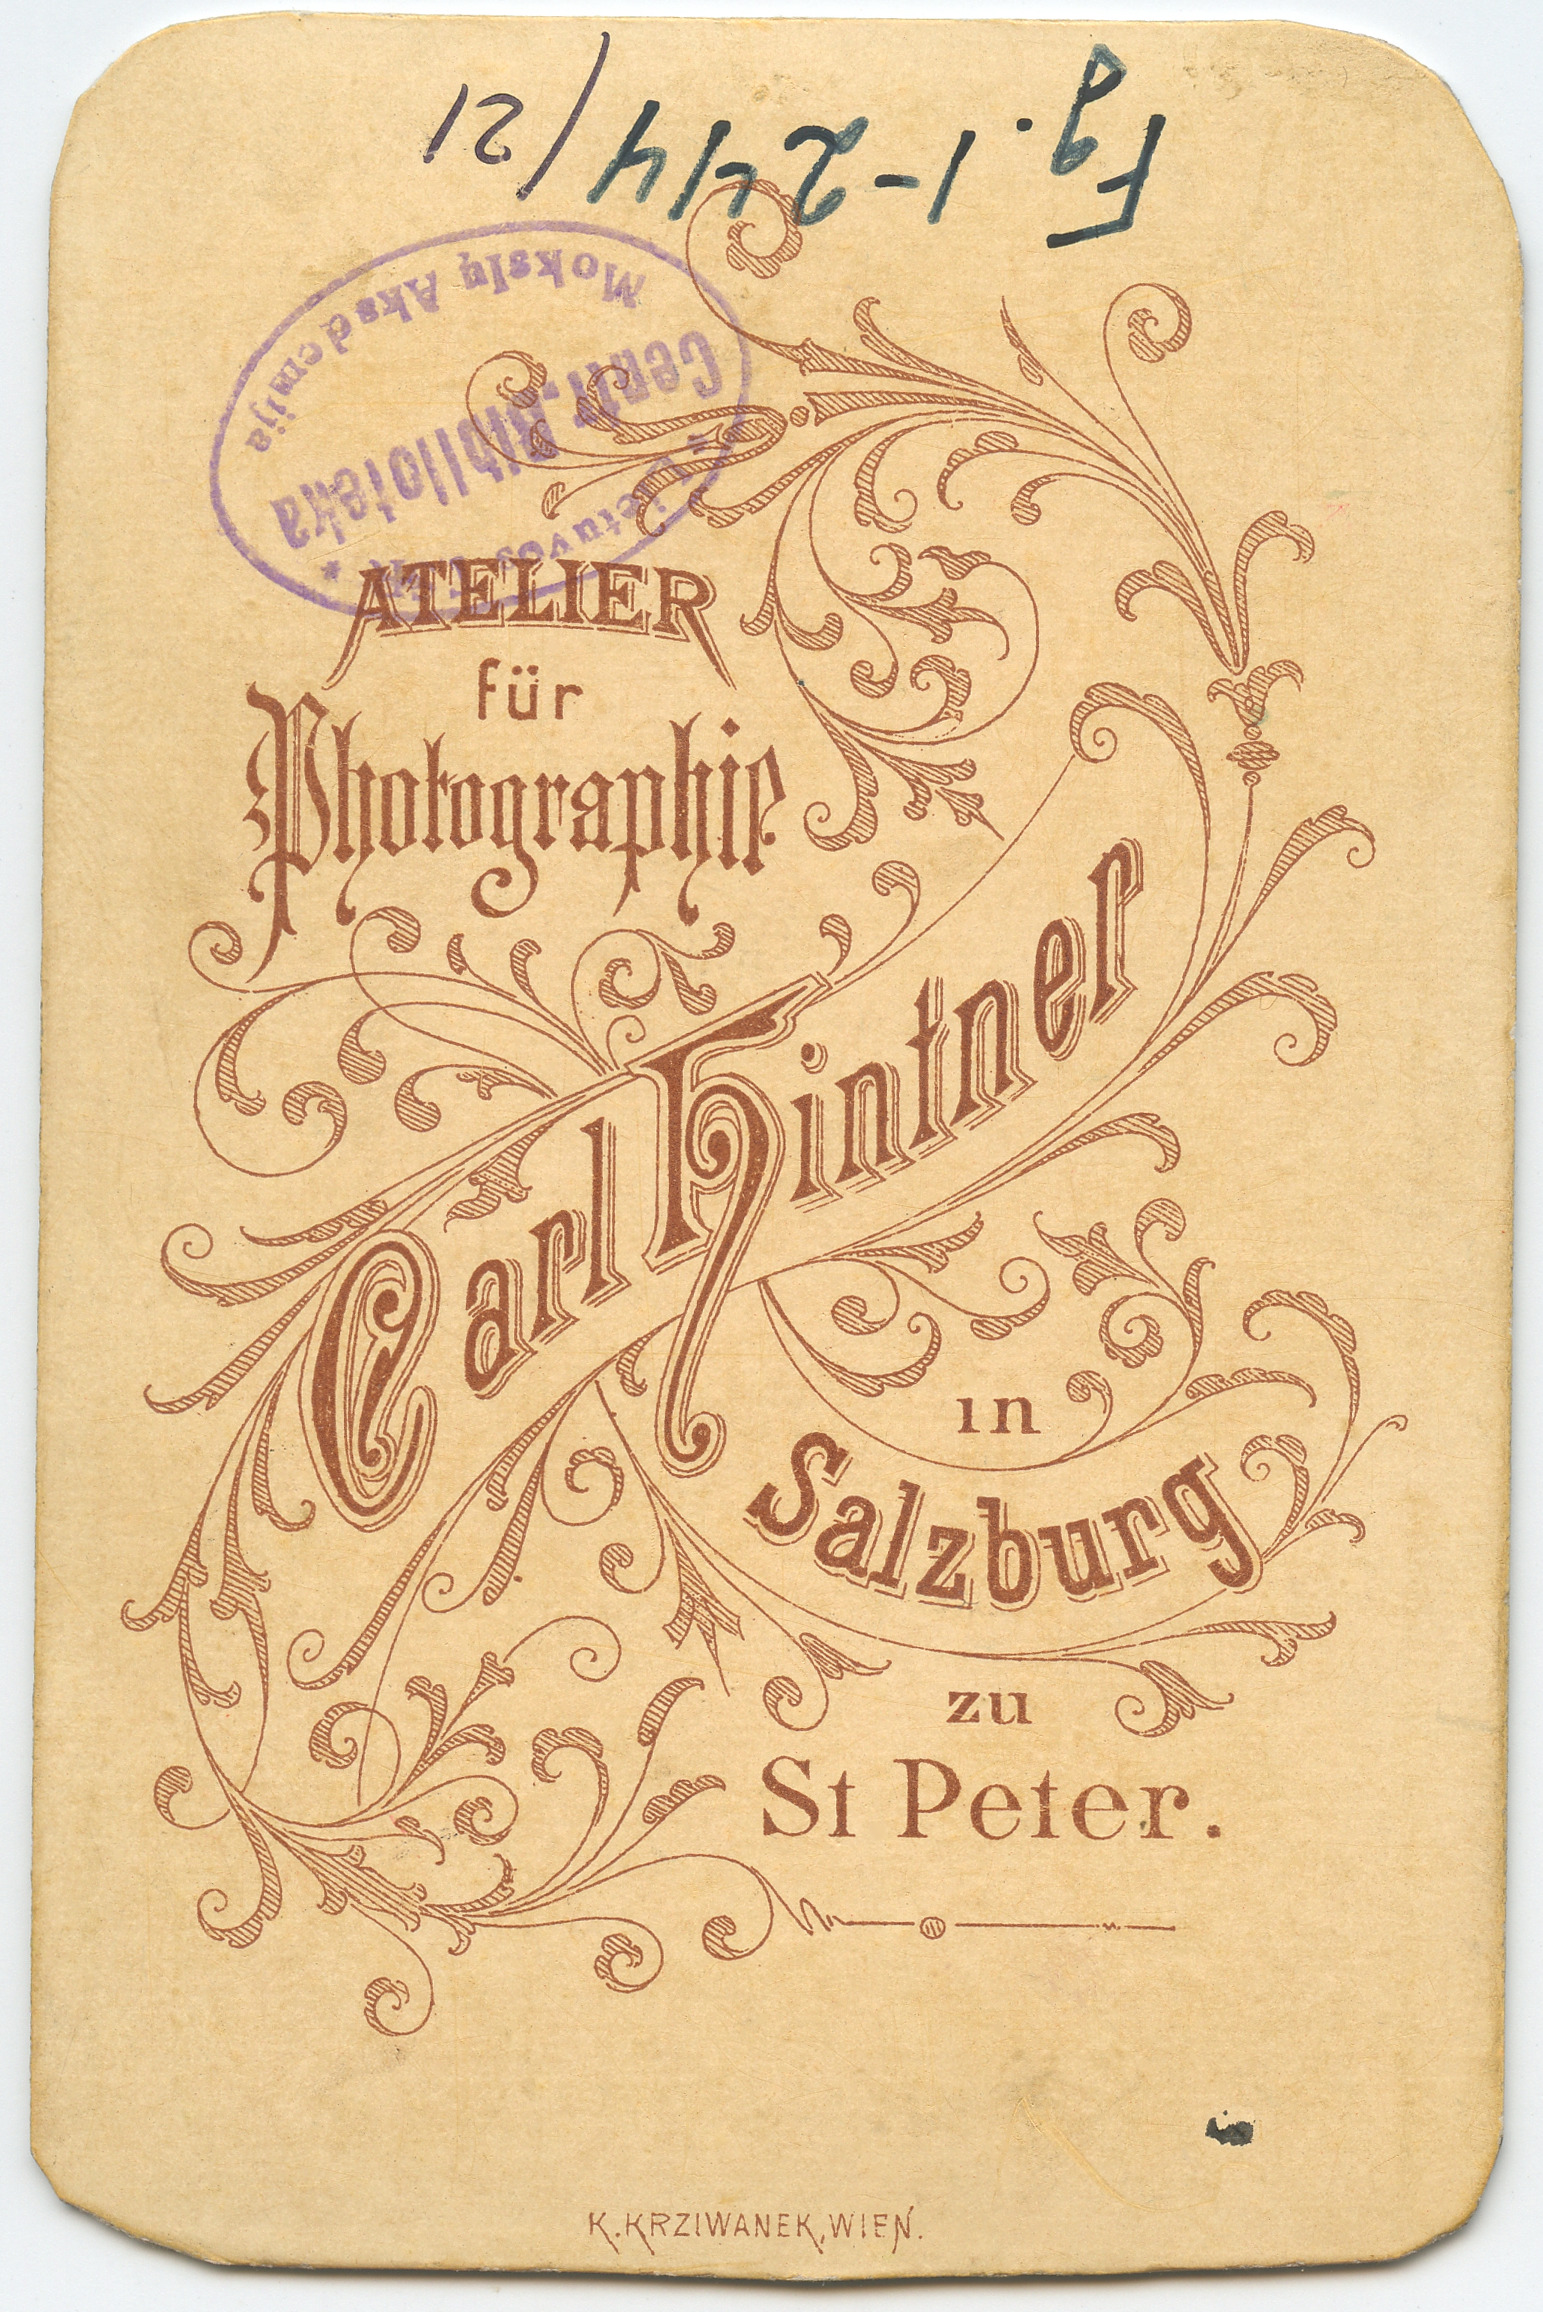 Fg. 1-2414/21
* Lietuvos TSR *
Centr. Biblioteka
Mokslų Akademija
ATELIER
für
Photographie
Carl Hintner
in
Salzburg
zu
St Peter.
K. KRZIWANEK, WIEN.